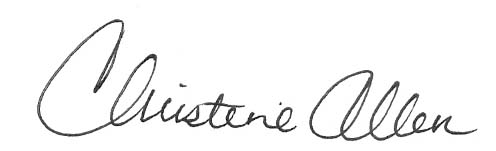 Christene Allen